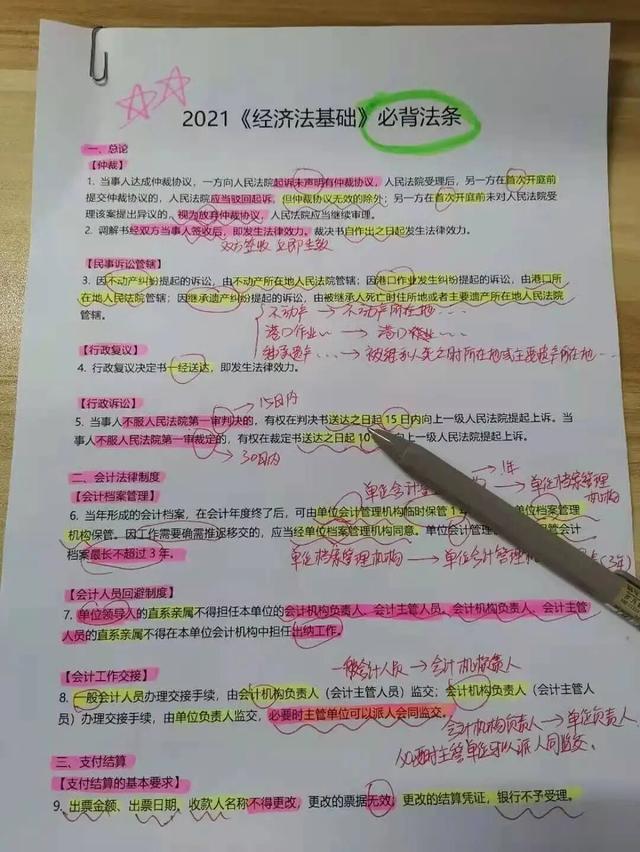 2021《经济法基础》必背法条
一、总论
【仲裁】
1. 当事人达成仲裁协议，一方向人民法院起诉未声明有仲裁协议，人民法院受理后，另一方在首次开庭前
提交仲裁协议的，人民法院应当驳回起诉，但仲裁协议无效的除外；另一方在首次开庭前未对人民法院受
理该案提出异议的，视为放弃仲裁协议，人民法院应当继续审理。
2. 调解书经双方当事人签收后，即发生法律效力。裁决书自作出之日起发生法律效力。
双方签收 立即生效
【民事诉讼管辖】
3. 因不动产纠纷提起的诉讼，由不动产所在地人民法院管辖；因港口作业发生纠纷提起的诉讼，由港口所
在地人民法院管辖；因继承遗产纠纷提起的诉讼，由被继承人死亡时住所地或者主要遗产所在地人民法院
管辖。
不动产 → 不动产所在地…
港口作业… → 港口
继承遗产… → 被继承人死亡时所在地或主要遗产所在地…
【行政复议】
4. 行政复议决定书一经送达，即发生法律效力。
【行政诉讼】
15日内
5. 当事人不服人民法院第一审判决的，有权在判决书送达之日起 15 日内向上一级人民法院提起上诉。当
事人不服人民法院第一审裁定的，有权在裁定书送达之日起 10 向上一级人民法院提起上诉。
日内
二、会计法律制度
1年
【会计档案管理】
单位会计 → 单位档案管理
机构
6. 当年形成的会计档案，在会计年度终了后，可由单位会计管理机构临时保管 1 单位档案管理
机构保管。因工作需要确需推迟移交的，应当经单位档案管理机构同意。单位会计管理 会计
档案最长不超过 3 年。
单位档案管理机构 → 单位会计管理 (3年)
【会计人员回避制度】
7. 单位领导人的直系亲属不得担任本单位的会计机构负责人、会计主管人员。会计机构负责人、会计主管
人员的直系亲属不得在本单位会计机构中担任出纳工作。
【会计工作交接】
一般会计人员 → 会计机构负责人
8. 一般会计人员办理交接手续，由会计机构负责人（会计主管人员）监交；会计机构负责人（会计主管人
员）办理交接手续，由单位负责人监交，必要时主管单位可以派人会同监交。
会计机构负责人 → 单位负责人，
必要时主管单位可以派人同监交。
三、支付结算
【支付结算的基本要求】
9. 出票金额、出票日期、收款人名称不得更改，更改的票据无效，更改的结算凭证，银行不予受理。